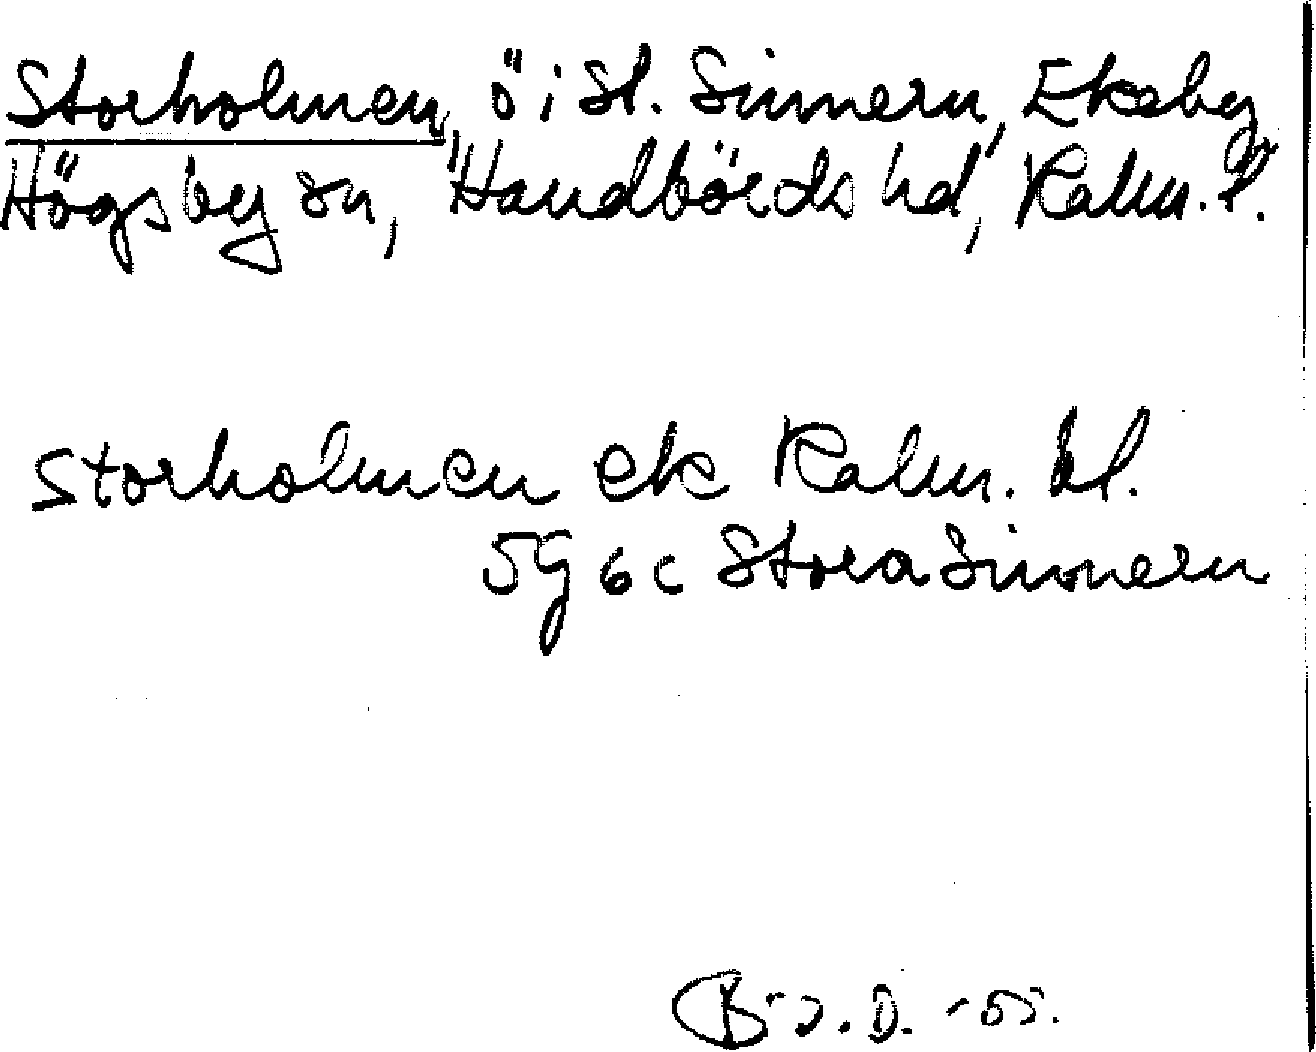 Storholmen, ö i St. Sinnern, Eksby
Högsby sn, Handbörds hd, Kalm. l.
Storholmen ek Kalm. bl.
5G 6c Stora Sinnern
-55.